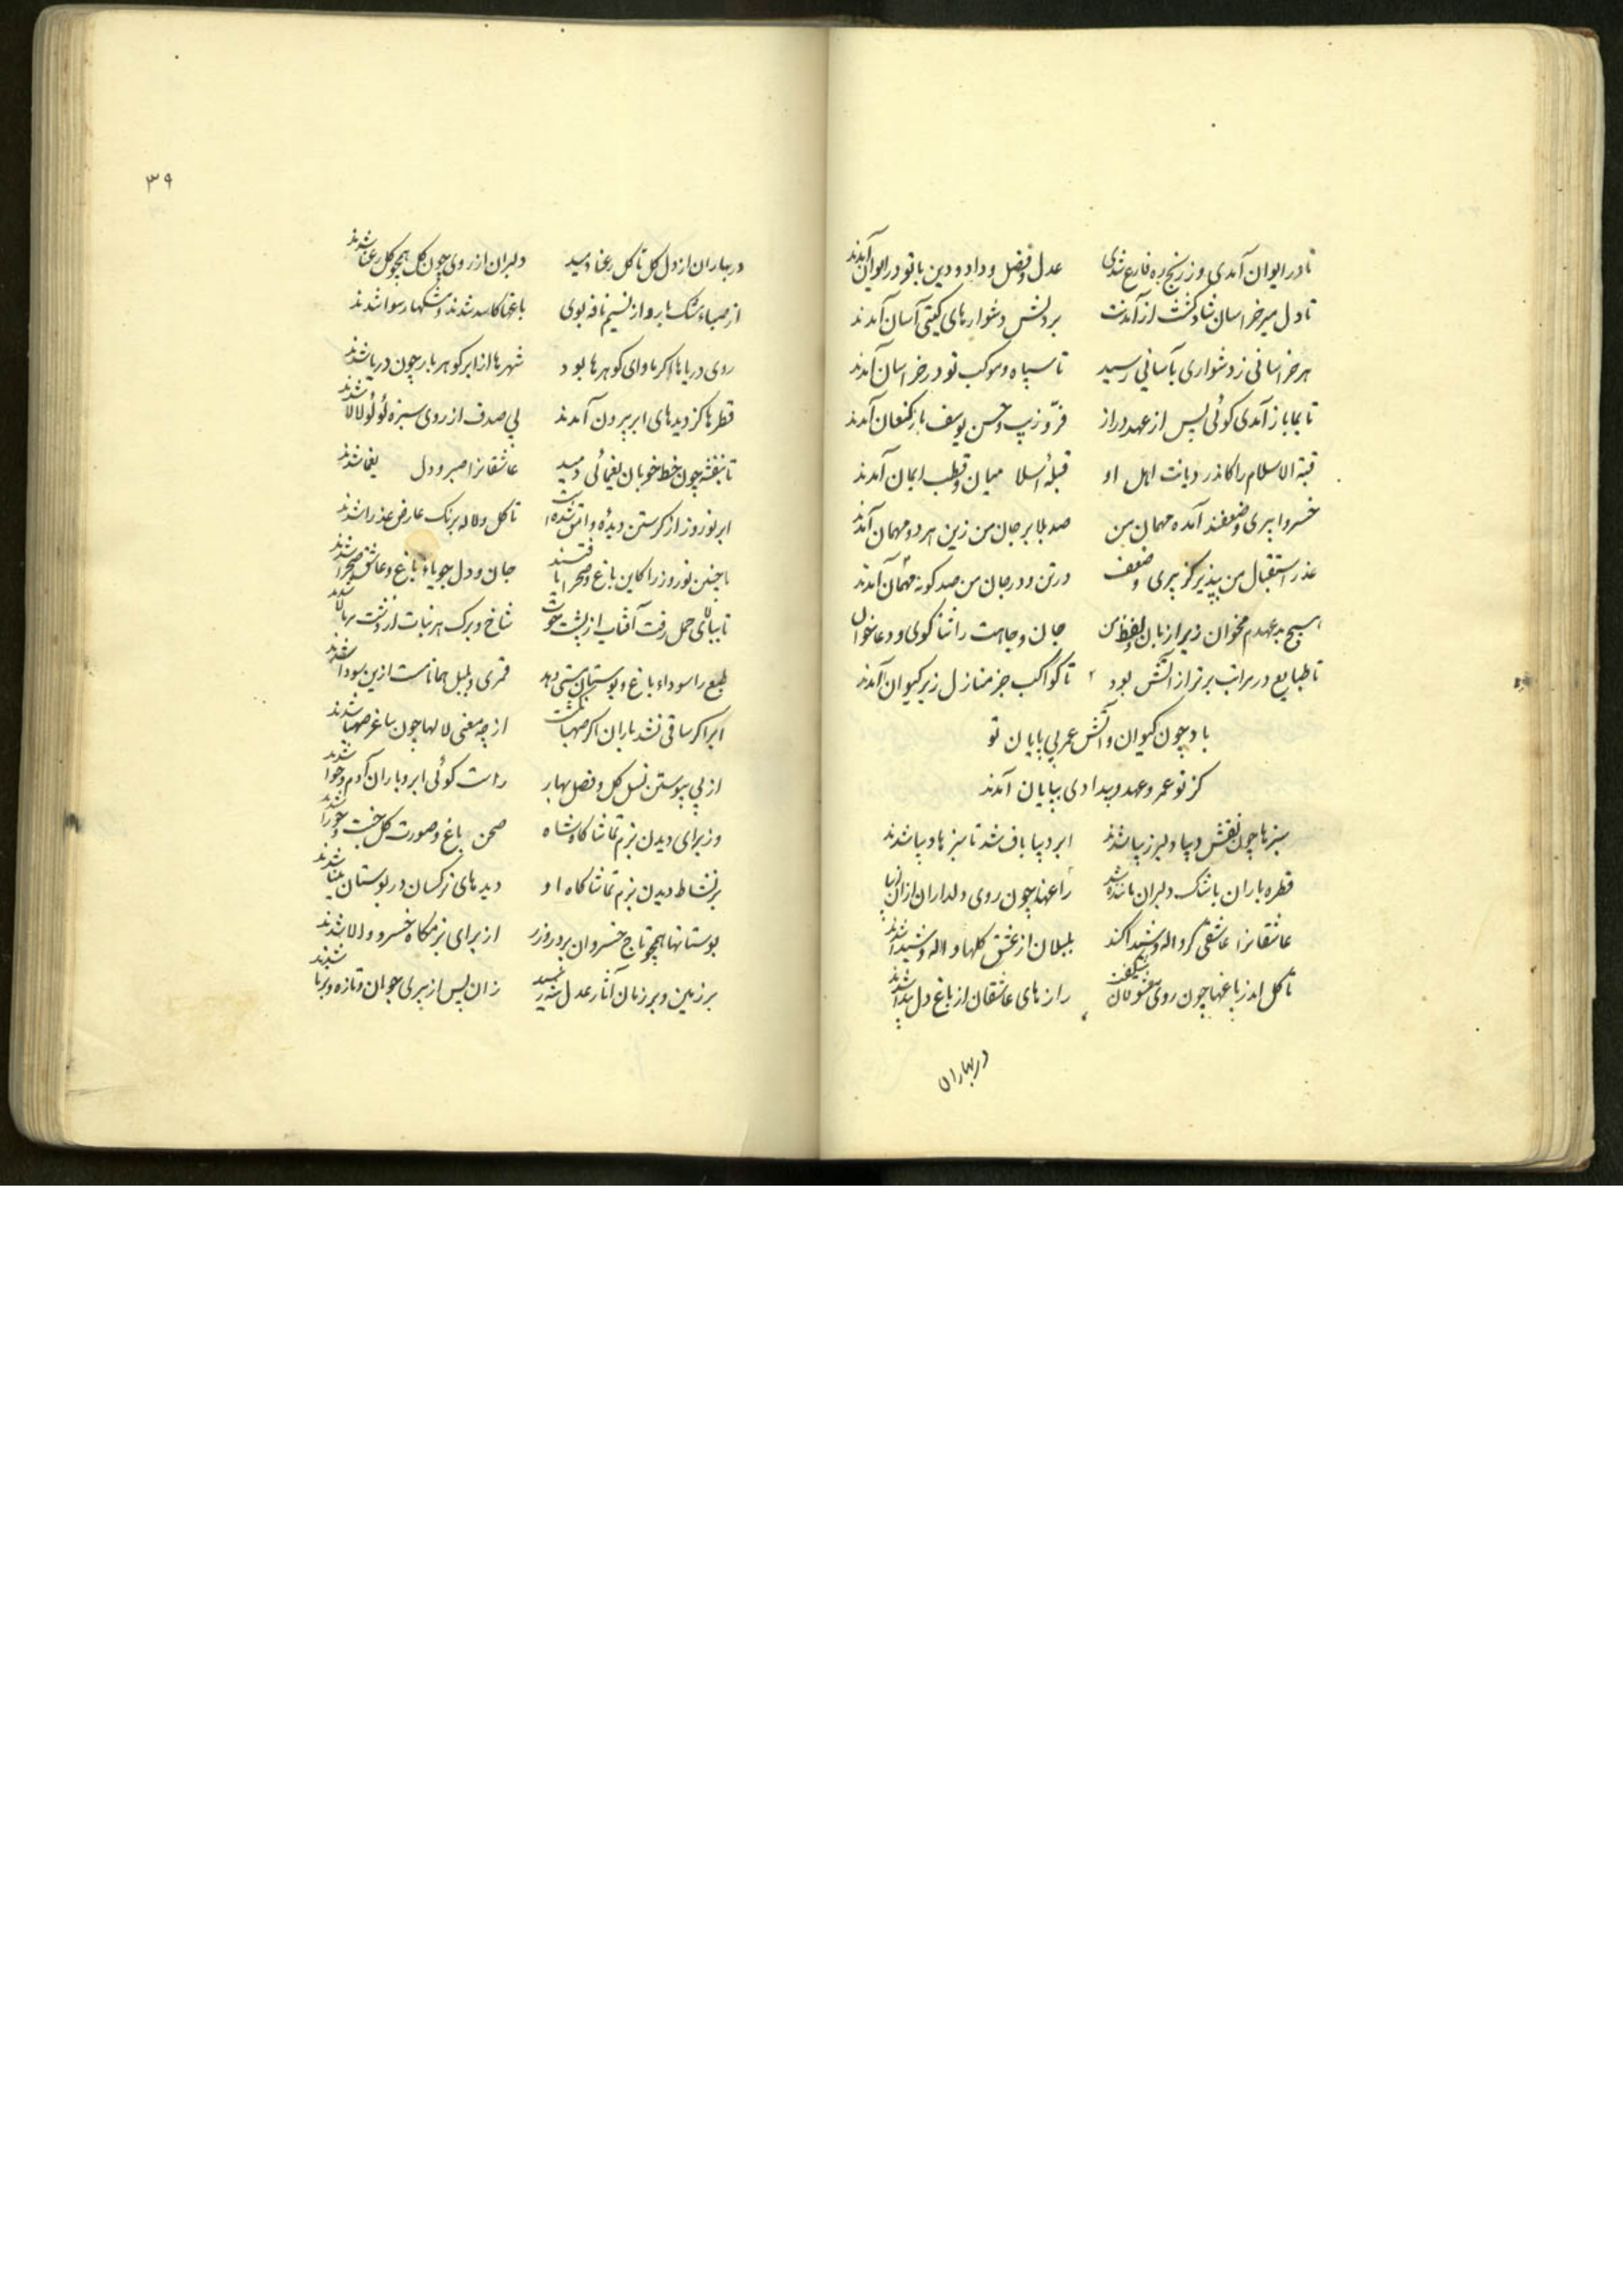 تا در ایوان آمدی وز رنج ره فارغ شدی عدل و فضل و داد و دین با تو در ایوان آمدند
تا دل میر خراسان شاد گشت از آمدنت بر دلش دشوارهای گیتی آسان آمدند
هر خراسانی ز دشواری بآسانی رسید تا سپاه و موکب تو در خراسان آمدند
تا بما باز آمدی گوئی پس از عهد دراز فرّ و زیب و حسن یوسف باز کنعان آمدند
قبة الاسلام را کاندر دیانت اهل او قبلهٔ اسلا میان و قطب ایمان آمدند
خسروا پیری و ضعفند آمده مهمان من صد بلا بر جان من زین هر دو مهمان آمدند
عذر استقبال من بپذیر کز پیری و ضعف در تن و در جان من صد گونه آمدند
بدعهدم مخوان زیرا زبان و لفظ من جان و جاهت را ثنا گوی و دعا خوان
تا طبایع در مراتب برتر از آتش بود تا کواکب جز منازل زیر کیوان آمدند
باد چون کیوان و آتش عمر بی پایان تو
کز تو عمر و عهد و بیدادی بپایان آمدند
سبزها چون نقش دیبا دلبر زیبا شدند ابر دیبا باف شد تا سبزها دیبا شدند
قطره باران باشک دلبران مانند شد راغها چون روی دلداران ازان زیبا
عاشقانرا عاشقی گر واله و شیدا کند بلبلان از عشق گلها واله و شیدا شدند
تا گل اندر باغها چون روی معشوقان شکفت رازهای عاشقان از باغ دل پیدا شدند
در بهاران
۳۹
در بهاران از دل گل تا گل رعنا دمید دلبران از روی چون گل همچو گل رعنا شدند
از صباء مشک با بر و از نسیم نافه بوی باغها کاسد شدند و مشکها رسوا شدند
روی دریاها اگر ماوای گوهرها بود شهرها از ابر گوهر بار چون دریا شدند
قطرها کز دیدهای ابر بیرون آمدند بی صدف از روی سبزه لؤلؤ لالا شدند
تا بنفشه چون خط خوبان یغمائی دمید عاشقانرا صبر و دل یغما شدند
ابر نوروز از گرستن دیدهٔ وامق شده است تا گل و لاله برنک عارض عذرا شدند
با چنین نوروز را کاین باغ و صحرا یافتند جان و دل جویاء باغ و عاشق صحرا شدند
تا ببالای حمل رفت آفتاب از پشت حوت شاخ و برک هر نبات از پشت بر بالا شدند
طبع را سوداء باغ و بوستان مستی دهد قمری و بلبل همانا مست ازین سودا شدند
ابر اگر ساقی نشد باران اگر صهبا نگشت از چه معنی لالها چون ساغر صهبا شدند
از پی پیوستن نسل گل و فصل بهار راست گوئی ابر و باران آدم و حوا شدند
وز برای دیدن بزم تماشا گاه شاه صحن باغ و صورت گل جنت و حورا شدند
بر نشاط دیدن بزم تماشا گاه او دیدهای نرگسان در بوستان بینا شدند
بوستانها همچو تاج خسروان پر در و زر از برای بزمگاه خسرو والا شدند
بر زمین و بر زمان آثار عدل رسید زان پس از پیری جوان و تازه و برنا شدند